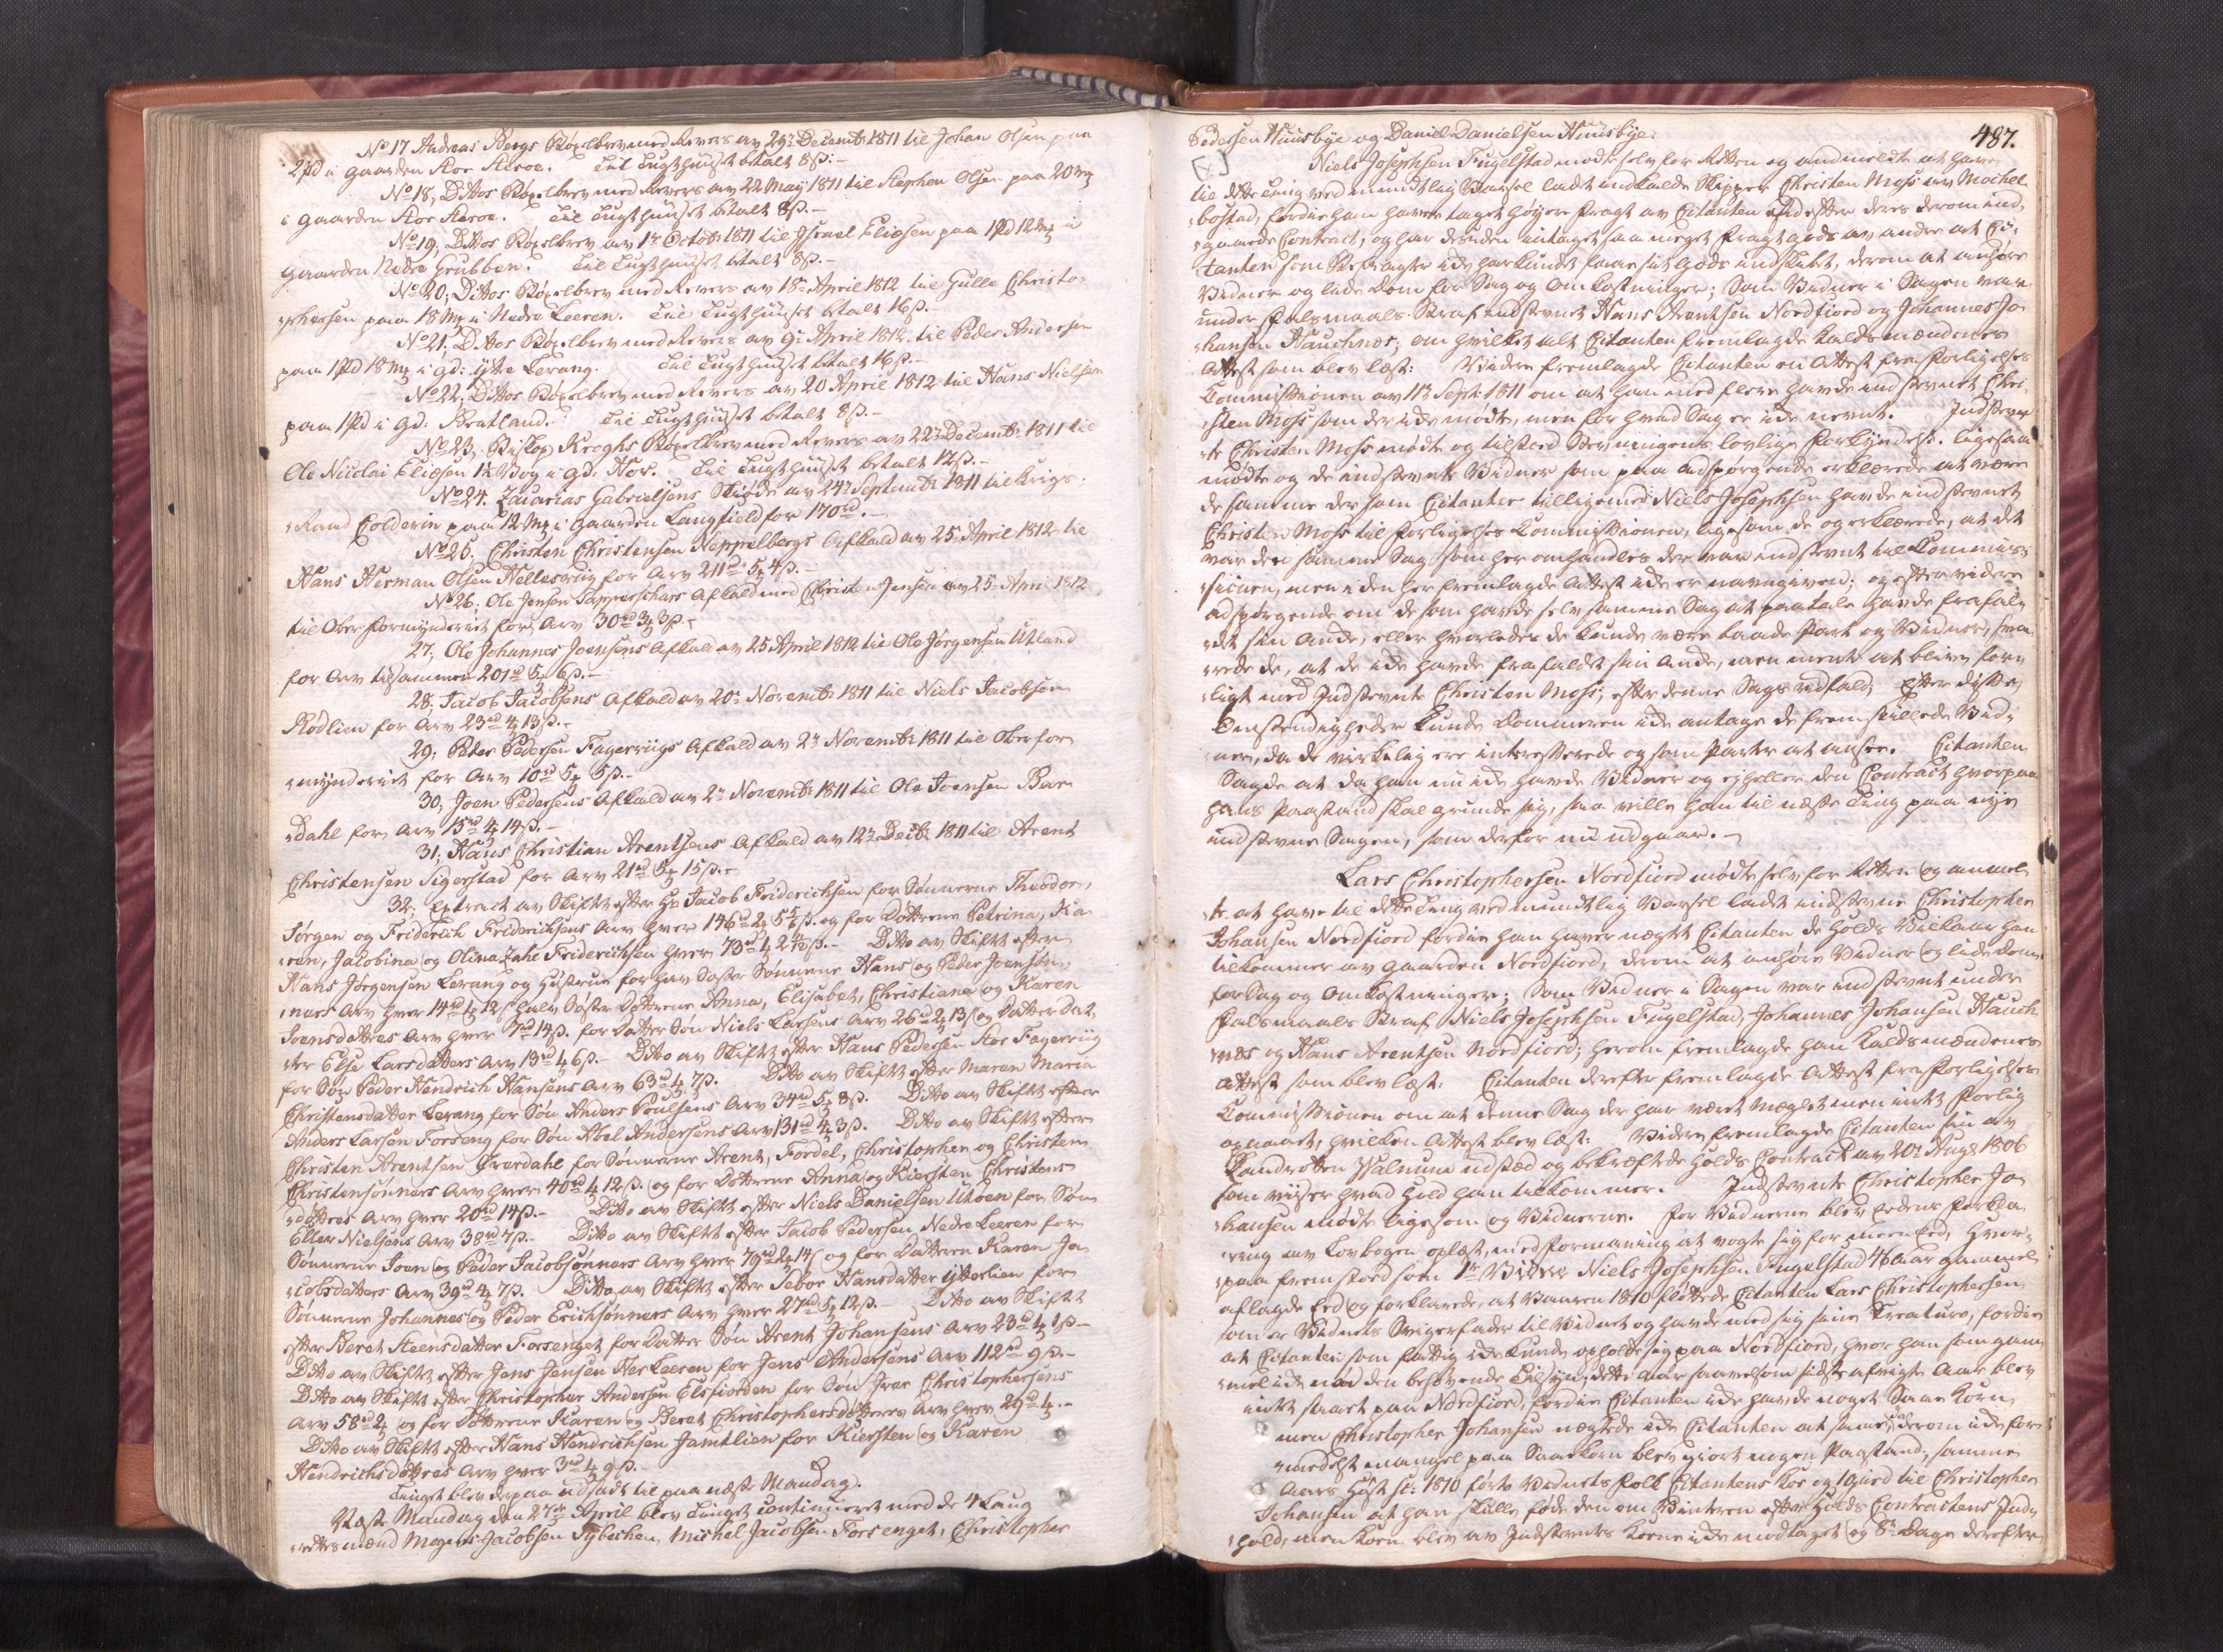 No 17 Andreas Bergs Bøxelbrev med Revers av 29de Decembr 1811 til Johan Olsen paa
2 pd i Gaarden Stor Alsroe. Til Tugthuuset betalt 8 s.-
No 18, Dittos Bøxelbrev med Revers av 22 May 1811 til Stephen Olsen paa 20 mk
i Gaarden Stor Alsroe. Til Tugthuuset betalt 8 s.-
No 19, Dittos Bøxelbrev av 1te Octobr 1811 til Israel Eliæsen paa 1 Pd 12 mk i
Gaarden Nedre Grubben. Til Tugthuuset betalt 8 s.-
No 20, Dittos Bøxelbrev med Revers av 18de April 1812 til Gulle Christo-
phersen paa 18 mk i Nedre Leeren. Til Tugthuuset betalt 16 s.-
No 21, Dittos Bøxelbrev med Revers av 9de April 1812 til Peder Andersen
paa 1 Pd 18 mk i Gd: ytre Lerang. Til Tugthuuset betalt 16 s.-
No 22, Dittos Bøxelbrev med Revers av 20 April 1812 til Hans Nielsen
paa 1 Pd i Gd: Bratland. Til Tugthuuset betalt 8 s.-
No 23, Biskop Kroghs Bøxelbrev med Revers av 22de Decembr 1811 til
Ole Nicolai Eliæsen 1½ Vog i Gd: Nor. Til Tugthuuset betalt 12 s.-
No 24. Zacarias Gabrielsens Skiøde av 24de Septembr 1811 til Krigs-
Raad Colderin paa 12 mk i Gaarden Langfield for 170 rd.-
No 25. Christen Christensen Neppelbergs Afkald av 25 April 1812 til
Hans Herman Olsen Hellesvig for Arv 211 rd 5 mk 4 s.-
No 26, Ole Jensen Afkald med Christ. Jensen av 25 April 1812
til Overformynderiet for Arv 30 rd 3 mk 3 s.-
27, Ole Johannes Joensens Afkald av 25 April 1812 til Ole Jørgensen Utland
for Arv tilsammen 201 rd 5 mk 6 s.-
28, Jacob Jacobsens Afkald av 20de Novembr 1811 til Niels Jacobsen
Rødlien for Arv 23 rd 4 mk 13 s.-
29, Peder Pedersen Fagerviigs Afkald av 2de Novembr 1811 til Overfor-
mynderiet for Arv 10 rd 5 mk 5 s.-
30, Joen Pedersens Afkald av 2de Novembr 1811 til Ole Joensen Bre-
dahl for Arv 15 rd 4 mk 14 s.-
31, Hans Christian Arentsens Afkald av 12te Decbr 1811 til Arent
Christensen Sigerstad for Arv 21 rd 5 mk 15 s.-
32, Extract av Skiftet efter Hr Jacob Friderichsen for Sønnerne Theodor,
Jørgen og Friderich Friderichsens Arv hver 146 rd 2 mk 5 s. og for Døttrene Petrina, Ka-
ren, Jacobina og Olina Friderichsen hver 73 rd 1 mk 2 s.- Ditto av Skiftet efter
Hans Jørgensen Lerang og Hustrue for Sønnerne Hans og Peder Joensøn-
ners Arv hver 14 rd 4 mk 12 s halv Søster Døttrene Anna, Elisabet, Christiana og Karen
Joensdatters Arv hver 7 rd 14 s. for Datter Søn Niels Larsens Arv 26 rd 2 mk 13 s og Datter Dat-
ter Else Larsdatters Arv 13 rd 4 mk 6 s.- Ditto av Skiftet efter Hans Pedersen Stor Fagerviig
for Søn Peder Hendrich Hansens Arv 63 rd 4 mk 7 s. Ditto av Skiftet efter Maren Maria
Christensdatter Lerang for Søn Anders Poulsens Arv 34 rd 5 mk 8 s. Ditto av Skiftet efter
Anders Larsen Forseng for Søn Abel Andersens Arv 131 rd 4 mk 3 s. Ditto av Skiftet efter
Christen Arentsen Øverdahl for Sønnerne Arent, Fordel, Christopher og Christen
Christensønners Arv hver 40 rd 4 mk 12 s. og for Døttrene Anna og Kiersten Christens-
døttres Arv hver 20 rd 14 s.- Ditto av Skiftet efter Niels Danielsen Utoen for Søn
Eller Nielsens Arv 38 rd 7 s.- Ditto av Skiftet efter Jacob Pedersen Nedre Leeren for
Sønnerne Joen og Peder Jacobsønners Arv hver 79 rd 2 mk 14 s og for Datteren Karen Ja-
cobsdatters Arv 39 rd 4 mk 7 s. Ditto av Skiftet efter Sebor Hansdatter ytterlien for
Sønnerne Johannes og Peder Erichsønners Arv hver 27 rd 5 mk 12 s.- Ditto av Skiftet
efter Beret Steensdatter Forsenget for Datter Søn Arent Johansens Arv 23 rd 4 mk 1 s.-
Ditto av Skiftet efter Jens Jensen Ner Leeren for Jens Andersens Arv 112 rd 9 s.-
Ditto av Skiftet efter Christopher Andersen Elsfiorden for Søn Iver Christophersens
Arv 58 rd 2 mk og for Døttrene Karen og Beret Christophersdøttres Arv hver 29 rd 1 mk.-
Ditto av Skiftet efter Hans Hendrichsen Jamtlien for Kiersten og Karen
Hendrichsdøttres Arv hver 3 rd 4 mk 9 s.-
Tinget blev derpaa udsadt til paa næste Mandag.
Næste Mandag den 27de April blev Tinget continueret med de 4 Laug
rettesmænd Mogens Jacobsen Sybechen, Michel Jacobsen Forsenget, Christopher
487.
Pedersen Huusbye og Daniel Danielsen Huusbye.
[x]
Niels Josephsen Fugelstad mødte selv for Retten og anmeldte at have
til dette Ting ved mundtlig Varsel ladet indkalde Skipper Christen Moss av Mochel-
bostad, fordie han haver taget høyere Fragt av Citanten end efter deres derom ind-
gaaede Contract, og har desuden indtaget saa meget Fragtgods av andre at Ci-
tanten som Befragter icke har kundet faae sit Gods indskibet, derom at anhøre
Vidner og lide Dom for Sag og Omkostninger; Som Vidner i Sagen var
under Falsmaals Straf indstevnet Hans Arentsen Nordfiord og Johannes Jo-
hansen Hauchnæs; om hvilket alt Citanten fremlagde Kaldsmændenes
Attest som blev læst: Videre fremlagde Citanten en Attest fra Forligelses
Commissionen av 11te Sept: 1811 om at han med flere havde indstevnet Chri-
sten Moss som der icke mødte, men for hvad Sag er icke nevnt. Indstevn-
te Christen Moss mødte og tilstod Stevningens lovlige Forkyndelse. ligesaa
mødte og de indstevnte Vidner som paa adspørgende erklærede at være
de samme der som Citanter tilligemed Niels Josephsen havde indstevnet
Christen Moss til Forligelses Commissionen, ligesom de og erklærede, at det
var den samme Sag som her omhandles der var indstevnt til Commis-
sionen, men i den her fremlagde Attest icke er navngiven; og efter videre
adspørgende om de som havde selv samme Sag at paatale havde frafal-
det sin Anke, eller hvorledes de kunde være baade Part og Vidner, sva-
rede de, at de icke havde frafaldet sin Anke, men mente at blive for-
ligt med Indstevnte Christen Moss, efter denne Sags udfald; Efter disse
Omstendigheder kunde Dommeren icke antage de fremstillede Vid-
ner, da de virkelig ere interesserede og som Parter at ansee. Citanten
Sagde at da han nu icke havde Vidner og ey heller den Contract hvorpaa
hans Paastand skal grunde sig, saa ville han til næste Ting paa nye
indstevne Sagen, som derfor nu udgaar.-
Lars Christophersen Nordfiord mødte selv for Retten og anmel-
te at have til dette Ting ved mundtlig Varsel ladet indstevne Christopher
Johansen Nordfiord fordie han haver nægtet Citanten de Holds Vilkaar han
tilkommer av Gaarden Nordfiord, derom at anhøre Vidner og lide Dom
for Sag og Omkostninger; Som Vidner i Sagen var indstevnt under
Falsmaals Straf Niels Josephsen Fugelstad, Johannes Johansen Hauch-
næs og Hans Arentsen Nordfiord; herom fremlagde han Kaldsmændenes
Attest som blev læst: Citanten derefter fremlagde Attest fra Forligelses
Commissionen om at denne Sag der har været Mæglet men intet Forlig
opnaaet, hvilken Attest blev læst: Videre fremlagde Citanten sin av
Landretten Walnum udsted og bekræftede Holds Contract av 20de Aug: 1806
som viser hvad Hold han tilkommer. Indstevnte Christopher Jo-
hansen mødte ligesom og Vidnerne. For Vidnerne blev Eedens Forkla-
ring av Lovbogen oplæst, med Formaning at vogte sig for Meeneed, Hvor-
paa fremstod som 1te Vidne Niels Josephsen Fugelstad 46 Aar gammel
aflagde Eed og forklarede, at Vaaren 1810 fløttede Citanten Lars Christophersen
som er Vidnets Svigerfader til Vidnet og havde med sig sine Creature, fordie
at Citanten som fattig icke kunde opholde sig paa Nordfiord, hvor han som gam-
mel icke nød den behøvende Tilsyn; dette Aar saavelsom sidst afvigte Aar blev
intet saaet paa Nordfiord, fordie Citanten icke havde noget Saae Korn,
men Christopher Johansen nægtede icke Citanten at saae, da derom icke for-
medelst mangel paa Saaekorn blev giort nogen Paastand; samme
Aars Høst sc: 1810 førte Vidnets Folk Citantens Koe og 1 Giæd til Christopher
Johansen at han skulle føde den om Vinteren efter Holds Contractens Ind-
hold, men Koen blev av Indstevntes Kone icke modtaget og 8te Dage derefter